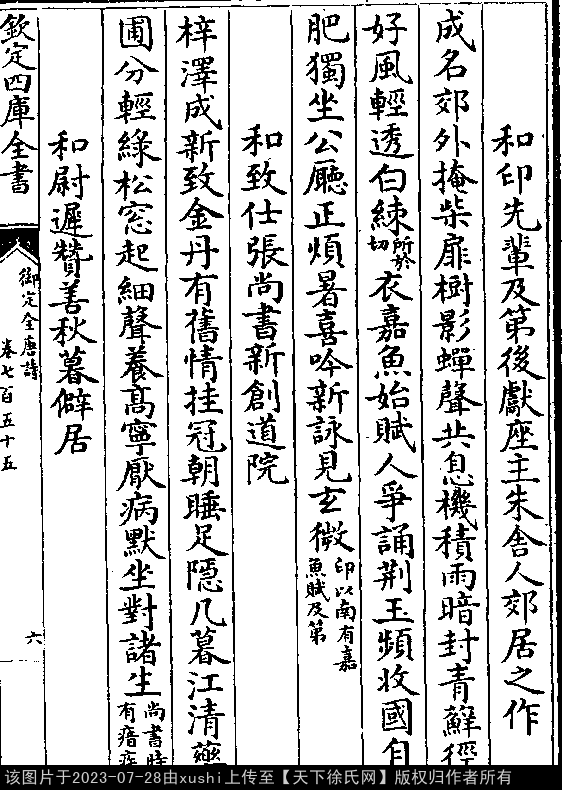 和印先輩及第後獻座主朱舍人郊居之作
成名郊外掩柴扉樹影蟬聲共息機積雨暗封青蘚徑
好風輕透白練所於切衣嘉魚始賦人爭誦荆玉頻收國自
肥獨坐公廳正煩暑喜吟新詠見玄微印以南有嘉魚賦及第
和致仕張尚書新創道院
梓澤成新致金丹有舊情挂冠朝睡足隱几暮江清藥
圃分輕綠松窓起細聲養髙寧厭病默坐對諸生尚書時有瘖疾
和尉遲贊善秋暮僻居
欽定四庫全書
御定全唐詩
卷七百五十五
六
该图片于2023-07-28由xushi上传至【天下徐氏网】版权归作者所有